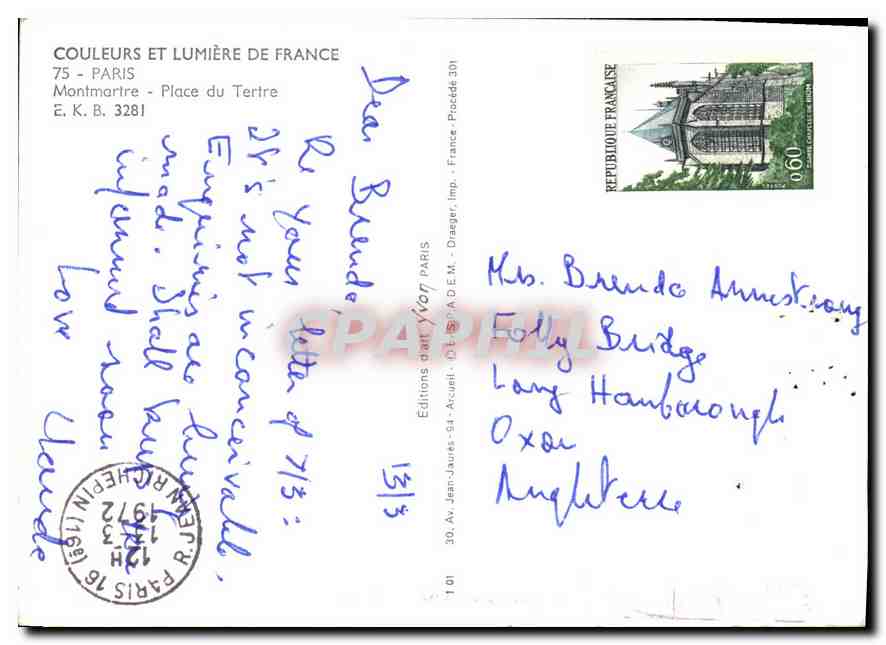 COULEURS ET LUMIÈRE DE FRANCE
75 - PARIS
Montmartre - Place du Tertre
E. K. B. 3281
13/3
Dear Brenda,
Re your letter of 7/3:
It's not inconceivable.
Enquiries are being
made. Shall keep
informed soon
Love
PARIS 16 R. JEAN RICHEPIN (16è)
12H
13-3
1972
Editions d'art Yvon PARIS
30, Av. Jean-Jaurès - 94 - Arcueil - S.P.A.D.E.M. - Draeger, Imp. - France - Procédé 301
1 01
REPUBLIQUE FRANÇAISE
0,60
SAINTE CHAPELLE DE RIOM
Mrs. Brenda Armstrong
Folly Bridge
Long Hanborough
Oxon
Angleterre
CPAPHIL